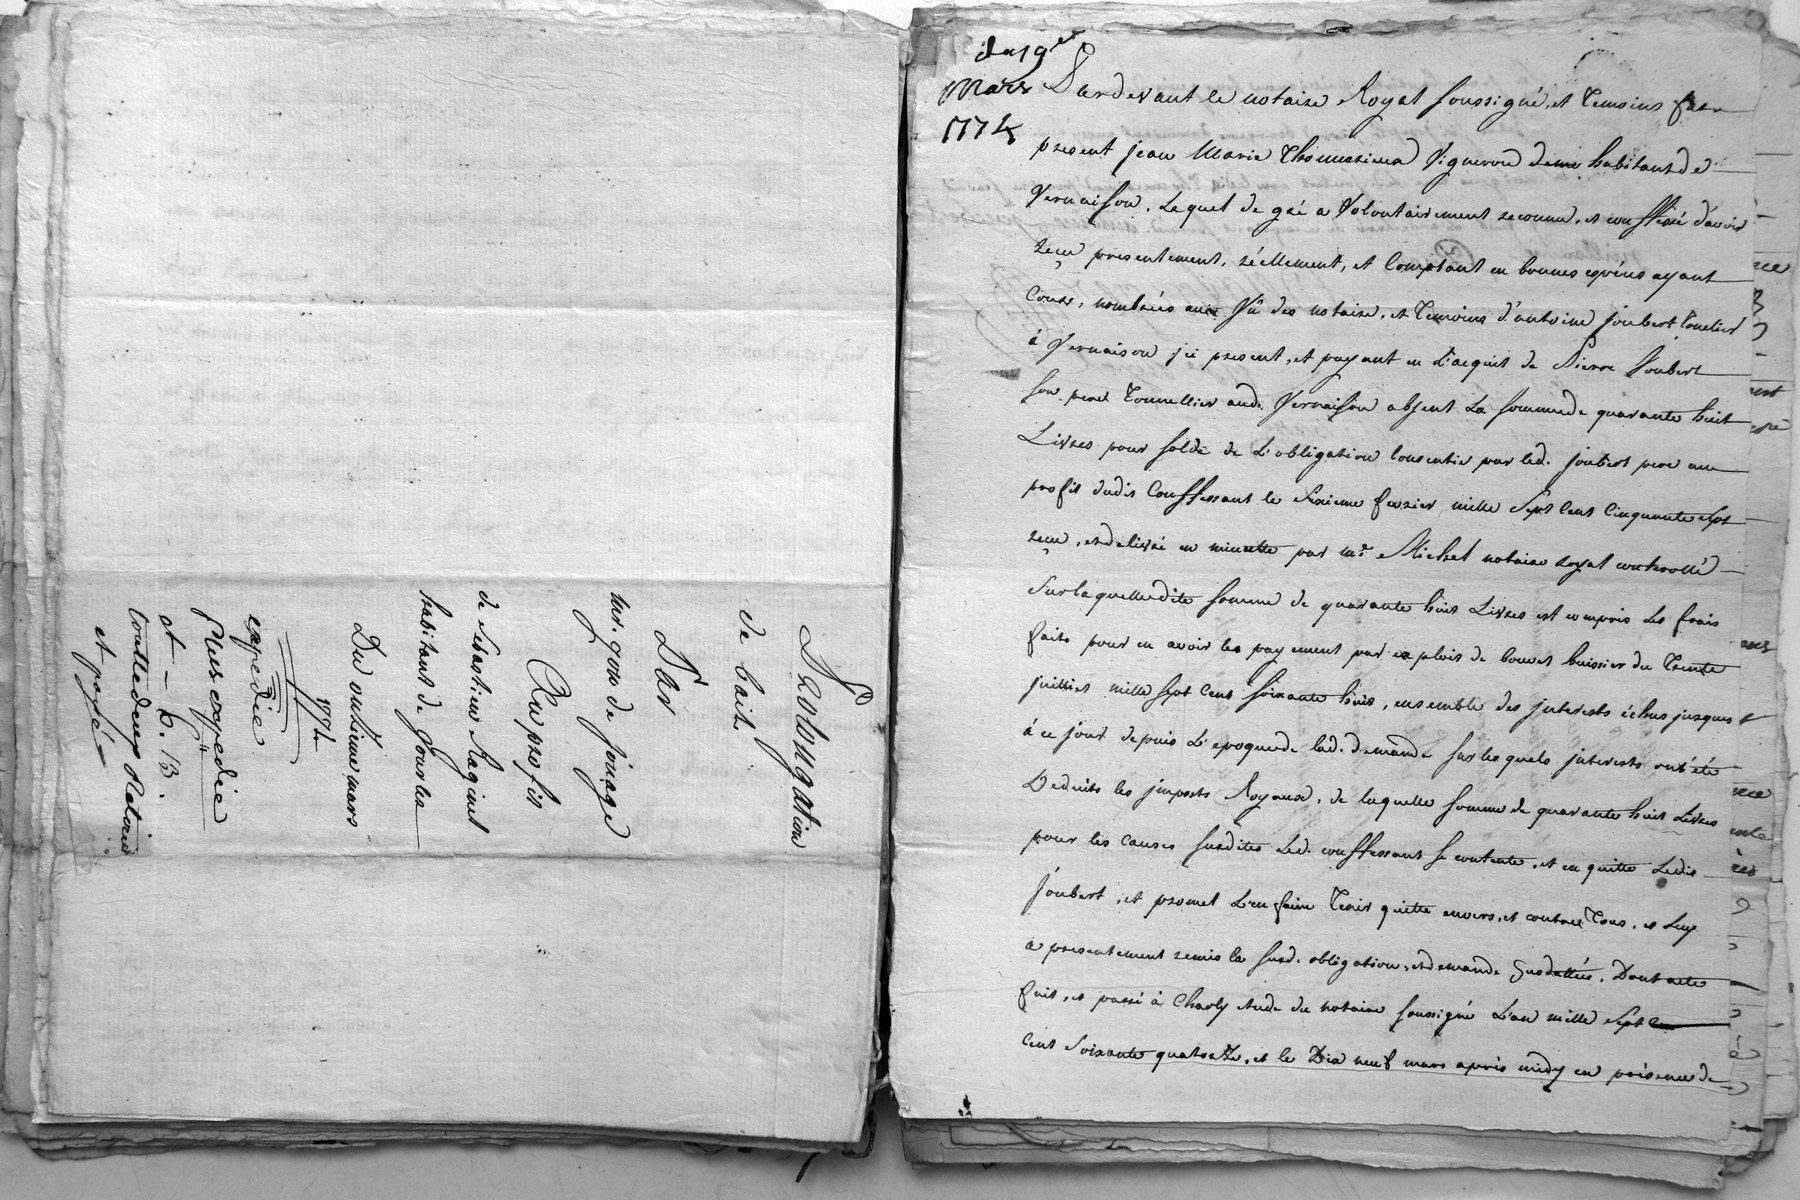 Prolongation
de bail
Par
mr. gros de jonage
Au profit
de Sebastien Raginel
habitant de Jourles
Du onzieme mars
1774
expediée
Plus expediée
et — 6. 13.
et payé
du 19e
Mars
1774
Pardevant le notaire Royal soussigné, et temoins fut
present jean Marie Thomeziera Vigneron demt habitant de
Vernaison, Lequel de gré a Volontairement reconnu, et confessé d'avoir
reçu presentement, réellement, et Comptant en bonnes espéces ayant
Cours, nombrées aux Vû des notaire, et temoins d'antoine joubert tonelier
à Vernaison ici present, et payant en L'acquit de Pierre Joubert
son pere Tonnellier aud. Vernaison absent La somme de quarante huit
Livres pour solde de L'obligation Consentie par led. joubert pere au
profit dudit Confessant le sixieme fevrier mille Sept Cent Cinquante sept
reçu, et delivré en minutte par me. Michel notaire royal controllé
Sur laquelle dite somme de quarante huit Livres est compris Les frais
faits pour en avoir le payement par exploit de bouvet huissier du Trente
juilliet mille sept Cent soixante huit, ensemble des jnterests échus jusques
à ce jour depuis L'epoque de lad. demande sur lesquels jnterests ont été
Deduits les jmposts Royaux, de laquelle somme de quarante huit Livres
pour les causes susdites Led. confessant se contente, et en quitte Ledit
Joubert, et promet L'en faire Tenir quitte envers, et contre Tous, et Luy
a presentement remis la susd. obligation, et demande susdattées, Dont acte
fait, et passé à Charly etude du notaire soussigné L'an mille Sept
Cent Soixante quatorze, et le Dix neuf mars après midy en présence de